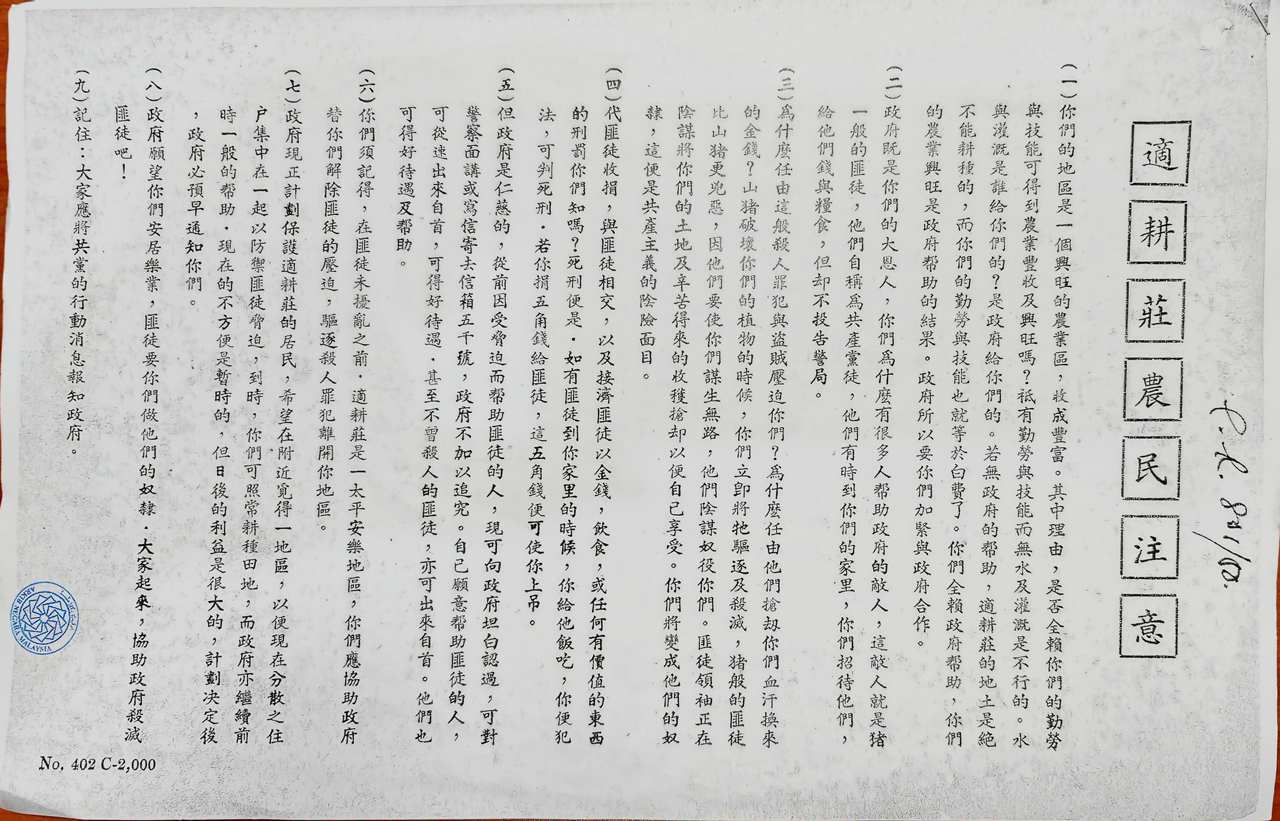 適耕莊農民注意
(一)你們的地區是一個興旺的農業區，收成豐富。其中理由，是否全賴你們的勤勞
與技能可得到農業豐收及興旺嗎？祗有勤勞與技能而無水及灌溉是不行的。水
與灌溉是誰給你們的？是政府給你們的。若無政府的帮助，適耕莊的地土是絕
不能耕種的，而你們的勤勞與技能也就等於白費了。你們全賴政府帮助，你們
的農業興旺是政府帮助的結果。政府所以要你們加緊與政府合作。
(二)政府既是你們的大恩人，你們爲什麽有很多人帮助政府的敵人，這敵人就是猪
一般的匪徒，他們自稱爲共產黨徒，他們有時到你們的家里，你們招待他們，
給他們錢與糧食，但却不投告警局。
(三)爲什麽任由這般殺人罪犯與盜賊壓迫你們？爲什麽任由他們搶刧你們血汗換來
的金錢？山猪破壞你們的植物的時候，你們立卽將牠驅逐及殺滅，猪般的匪徒
比山猪更兇惡，因他們要使你們謀生無路，他們陰謀奴役你們。匪徒領袖正在
陰謀將你們的土地及辛苦得來的收穫搶却以便自己享受。你們將變成他們的奴
隸，這便是共產主義的陰險面目。
(四)代匪徒收捐，與匪徒相交，以及接濟匪徒以金錢，飲食，或任何有價值的東西
的刑罰你們知嗎？死刑便是．如有匪徒到你家里的時候，你給他飯吃，你便犯
法，可判死刑．若你捐五角錢給匪徒，這五角錢便可使你上吊。
(五)但政府是仁慈的，從前因受脅迫而帮助匪徒的人，現可向政府坦白認過，可對
警察面講或寫信寄去信箱五千號，政府不加以追究。自己願意帮助匪徒的人，
可從速出來自首，可得好待遇．甚至不曾殺人的匪徒，亦可出來自首。他們也
可得好待遇及帮助。
(六)你們須記得，在匪徒未擾亂之前．適耕莊是一太平安樂地區，你們應協助政府
替你們解除匪徒的壓迫，驅逐殺人罪犯離開你地區。
(七)政府現正計劃保護適耕莊的居民，希望在附近覓得一地區，以便現在分散之住
户集中在一起以防禦匪徒脅迫，到時，你們可照常耕種田地，而政府亦繼續前
時一般的帮助．現在的不方便是暫時的，但日後的利益是很大的，計劃决定後
，政府必預早通知你們。
(八)政府願望你們安居樂業，匪徒要你們做他們的奴隸．大家起來，協助政府殺滅
匪徒吧！
(九)記住：大家應將共黨的行動消息報知政府。
No. 402 C-2,000
ARKIB NEGARA MALAYSIA